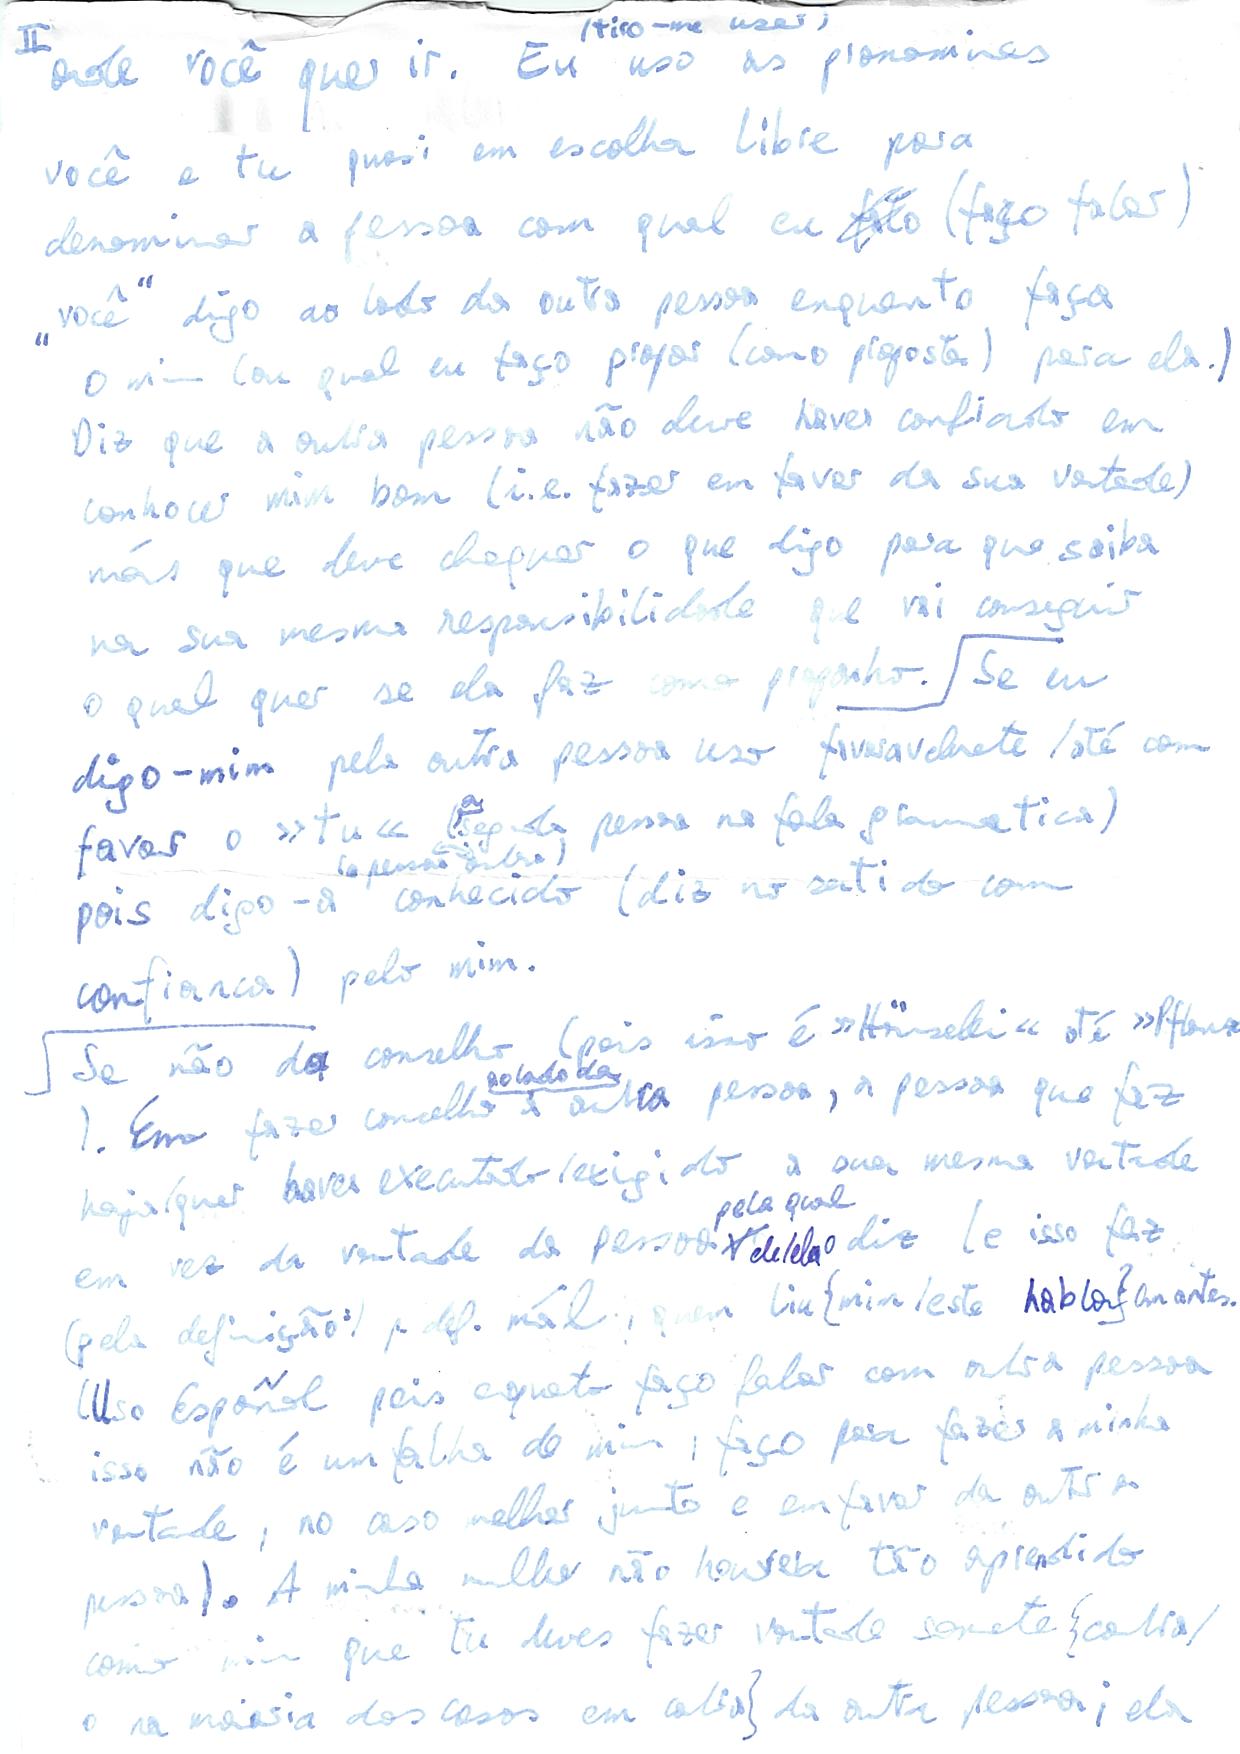 II
(tiro-me usar)
onde você quer ir. Eu uso as pronominas
você e tu quasi em escolha libre para
denominar a pessoa com qual eu falo (faço falar)
"você" digo ao lado da outra pessoa enquanto faça
o mim (ou qual eu faço propor (como proposta) para ela.)
Diz que a outra pessoa não deve haver confiado em
conhocer mim bom (i.e. fazer em favor da sua vontade)
más que deve cheguer o que digo para que saiba
na sua mesma responsibilidade que vai conseguir
o qual quer se ela faz como proponho. Se eu
digo-mim pela outra pessoa uso /até com
favor o »tu« (a segunda pessoa na fala gramatica)
(a pessoa outra)
pois digo-a conhecido (diz no sentido com
confianca) pelo mim.
Se não da conselho (pois isso é »Hänselei« até »Pflanz
). Em fazer concelho a outra pessoa, a pessoa que faz
ao lado da
haja/quer haver executado/exigido a sua mesma vontade
pela qual
em vez da vontade da pessoa dele/dela diz (e isso faz
(pela definição:) p def. mál, quem liu {mim/este hablar} em antes.
(Uso Españõl pois enquanto faço falar com outra pessoa
isso não é um falha de mim, faço para fazer a minha
vontade, no caso melhor junto e em favor da outra
pessoa). A minha mulher não houvera tão aprendido
como mim que tu deves fazer vontade somente {contra/
o na maioria dos casos em contra} da outra pessoa; ela